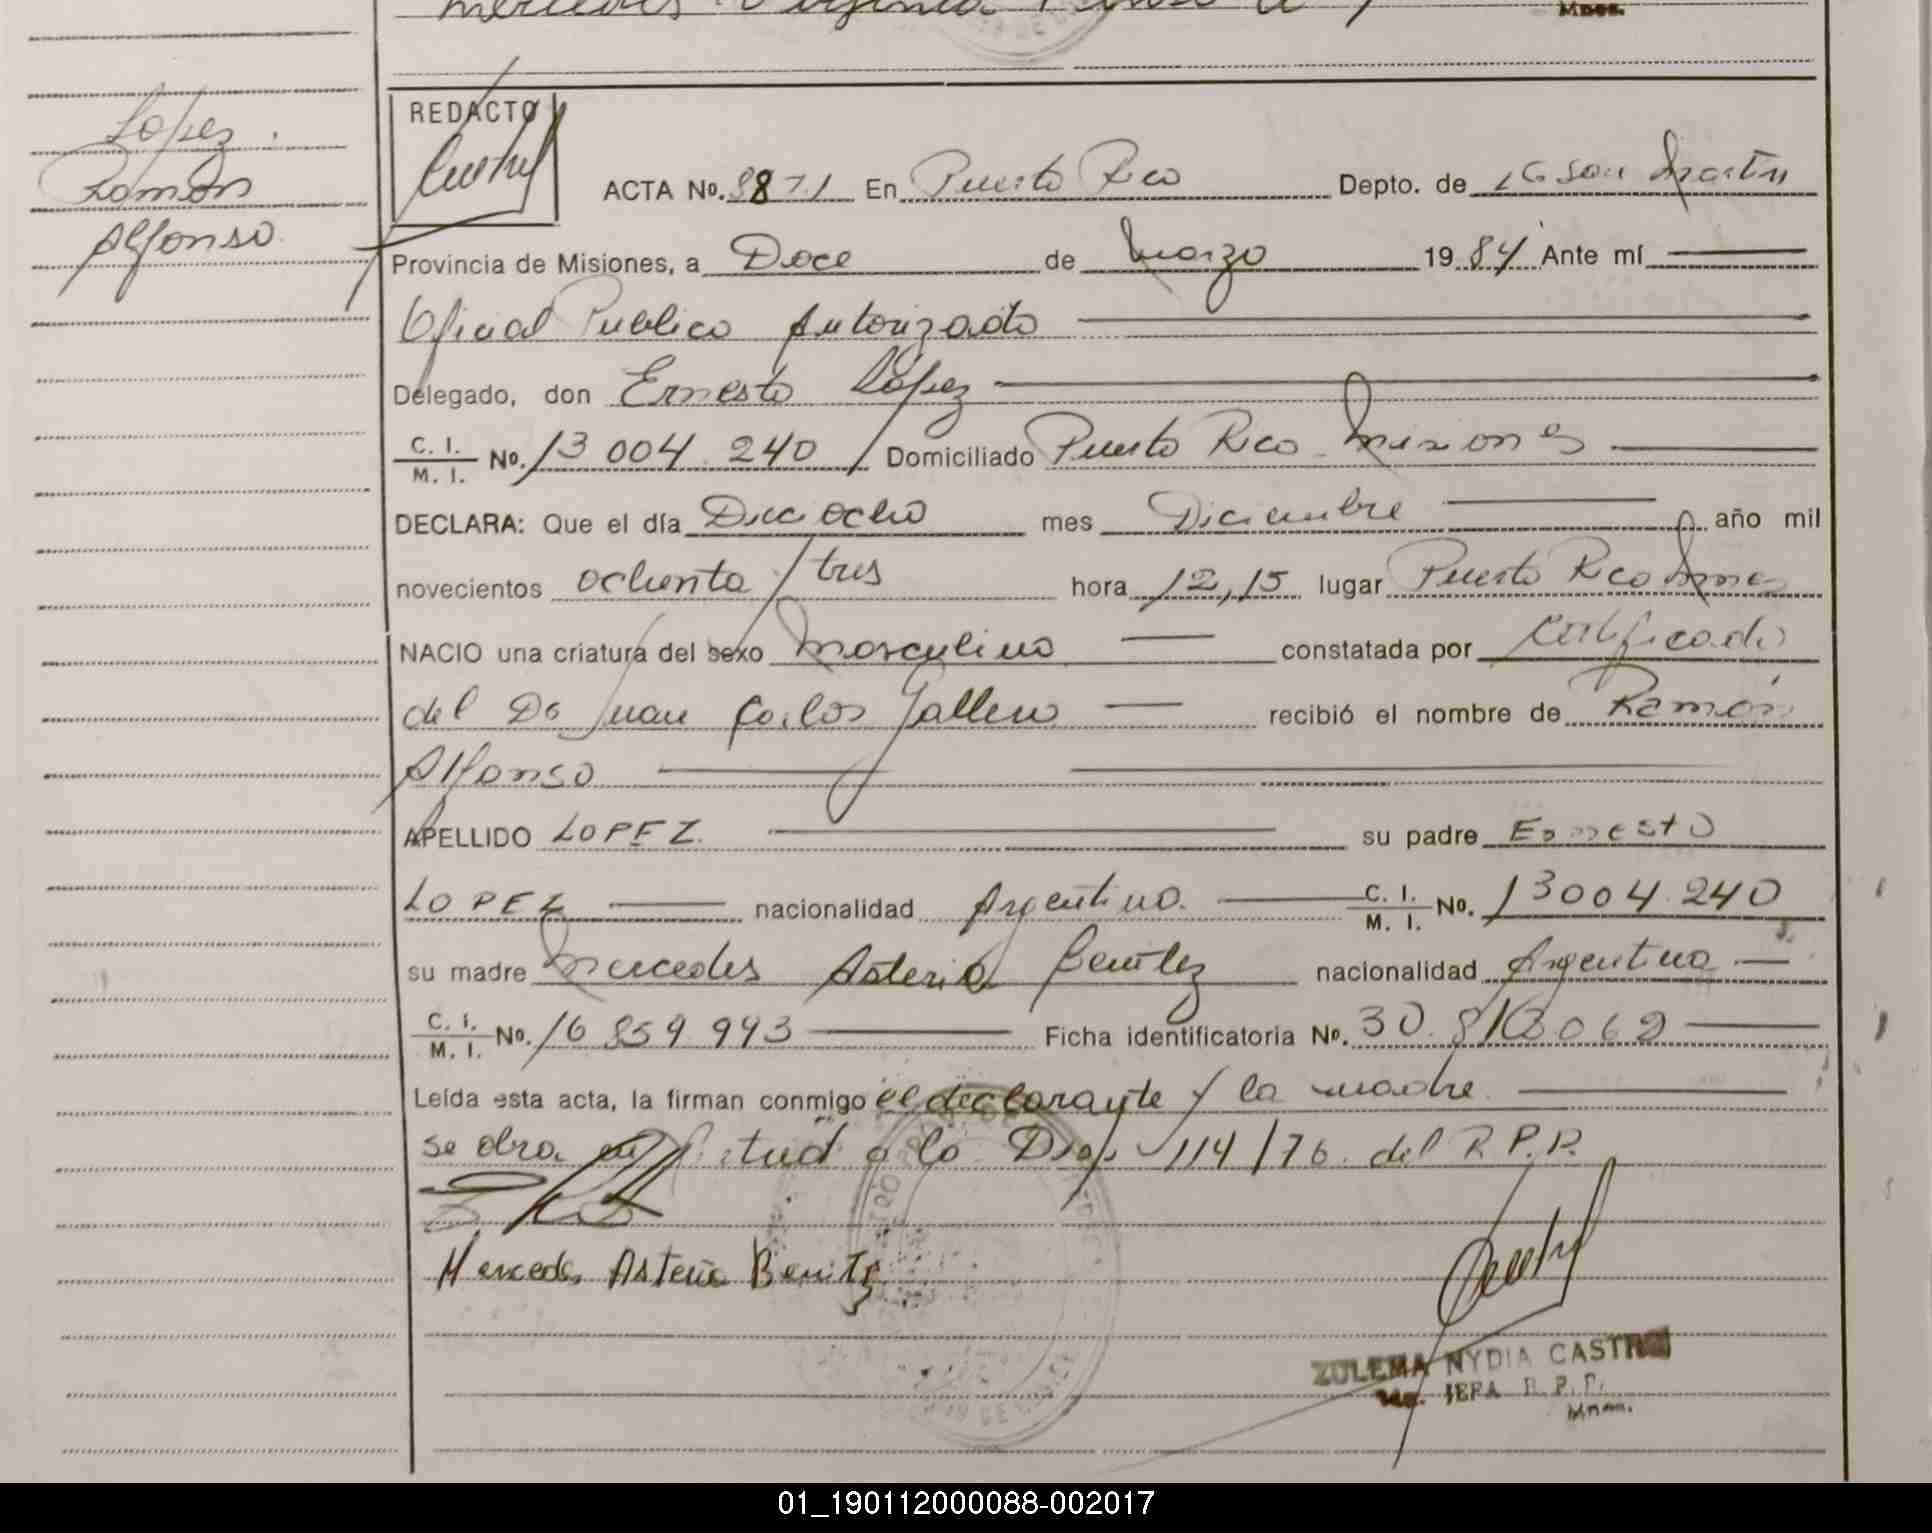 Mnes.
Lopez
Ramón
Alfonso
REDACTO
ACTA No. 8871 En Puerto Rico Depto. de LG San Martín
Provincia de Misiones, a Doce de Marzo 1984 Ante mí
Oficial Publico Autorizado
Delegado, don Ernesto López
C. I. M. I. No. 13 004.240 Domiciliado Puerto Rico Misiones
DECLARA: Que el día Dieciocho mes Diciembre año mil
novecientos ochenta y tres hora 12,15 lugar Puerto Rico Mnes
NACIO una criatura del sexo Masculino constatada por Certificado
del Dr Juan Carlos Gallero recibió el nombre de Ramón
Alfonso
APELLIDO LOPEZ su padre Ernesto
LOPEZ nacionalidad Argentino. C. I. M. I. No. 13004.240
su madre Mercedes Asteria Benitez nacionalidad Argentina
C. I. M. I. No. 16.859.993 Ficha identificatoria No. 30.810062
Leída esta acta, la firman conmigo el declarante y la madre
se obra en virtud a la Disp 114/76 del R.P.P.
Mercedes Asteria Benitez
ZULEMA NYDIA CASTRO
JEFA R. P. P.
Mnes.
01_190112000088-002017